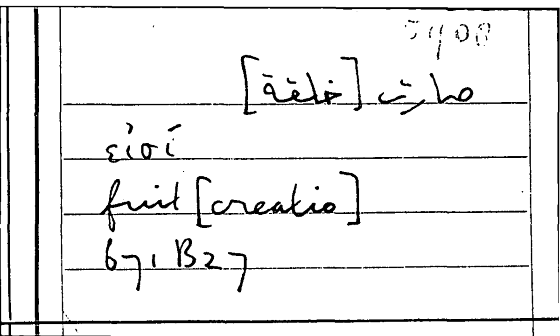 صارت [خلقة]
εἰσί
fuit [creatio]
671 B27